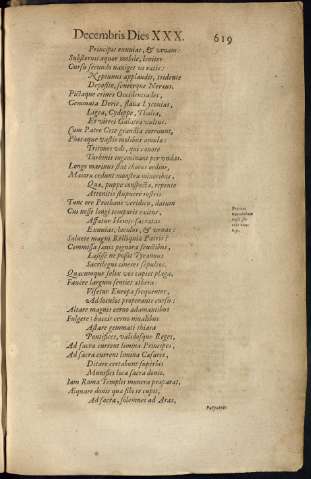 Decembris Dies XXX. 619
Principis exuvias, & urnam:
Substernit æquor mobile, leniter
Cursu secundo naviget ut ratis:
Neptunus applaudit, tridente
Deposito, senecque Nereus.
Pictæque crines Oceanitides,
Gemmata Doris, flava Lyconias,
Ligea, Cydippe, Thalia,
Et vitrei Galatea vultus.
Cum Patre Ceto grandia corruunt,
Phocæque vastis molibus annulæ:
Tritones udi, qui canoro
Turbinis ingeminant per undas.
Longo marinus stat chorus ordine,
Maiora cedunt monstra minoribus,
Qua, puppe conspecta, repente
Attonitis stupuere rostris.
Tunc ore Protheus veridico, datum
Cui nosse longi temporis exitus,
Affatur Herois sacratas
Exuvias, loculos, & urnam:
Salvete magni Relliquiæ Patris!
Commissa sanis pignora fluctibus,
Læsisse ne possit Tyrannus
Sacrilegus cineres sepultos.
Quacumque felix vos capiet plaga,
Favere largum sentiet æthera:
Visetur Europæ frequenter,
Ad loculos properante cursu:
Altare magnis cerno adamantibus
Fulgere: baccis cerno micalibus
Astare gemmati thiara
Pontifices, validosque Reges,
Ad sacra current limina Principes,
Ad sacra current limina Cæsares,
Ditare certabunt superbis
Munifici loca sacra donis.
Iam Roma Templis munera præparat,
Æquare donis quæ sibi te cupit,
Ad sacra, solemnes ad Aras,